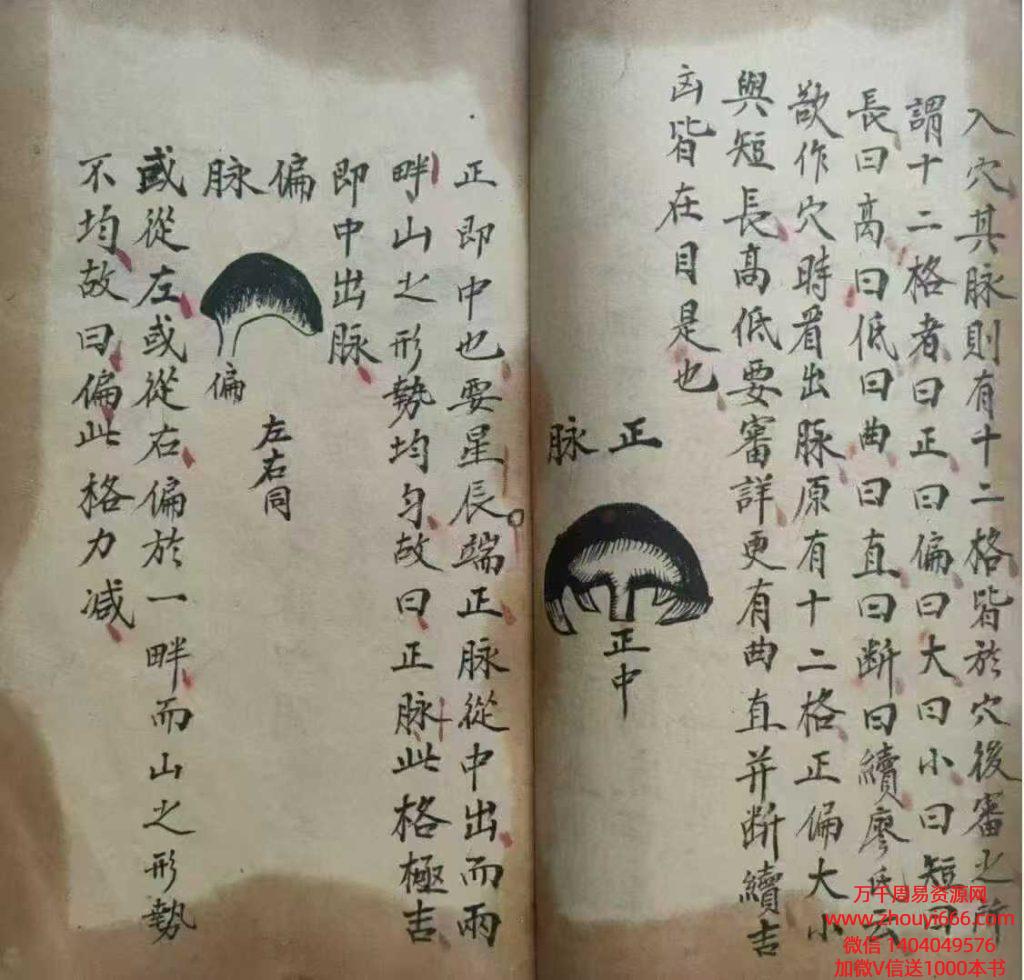 入穴其脉則有十二格皆於穴後審之所
謂十二格者曰正曰偏曰大曰小曰短曰
長曰高曰低曰曲曰直曰断曰續廖氏云
欲作穴時看出脉原有十二格正偏大小
與短長高低要審詳更有曲直并断續吉
凶皆在目是也
正脉
正中
正即中也要星辰端正脉從中出而兩
畔山之形勢均匀故曰正脉此格極吉
即中出脉
偏脉
偏
左右同
或從左或從右偏於一畔而山之形勢
不均故曰偏此格力减
万千周易资源网
www.zhouyi666.com
微信 1404049576
加微V信送1000本书